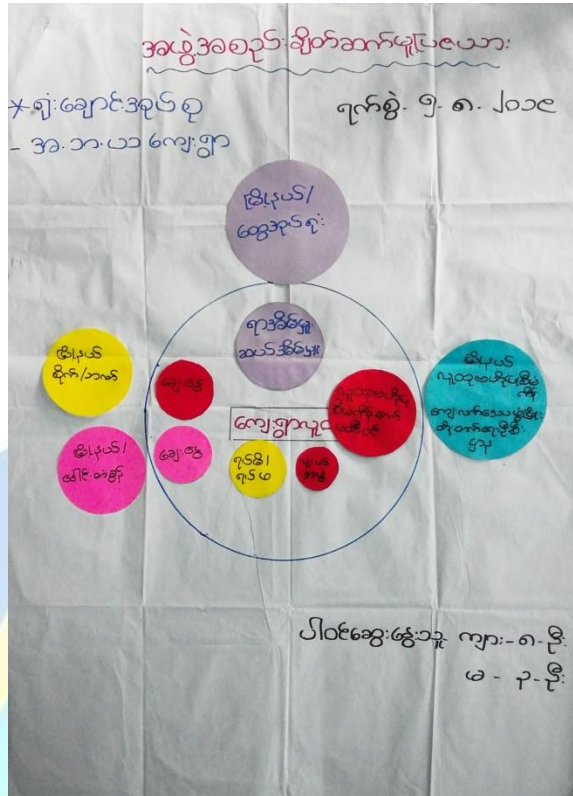 အဖွဲ့အစည်းချိတ်ဆက်မှုပြဇယား
* ရုံးချောင်းအုပ်စု
- အ.ဘ.ယာ ကျေးရွာ
ရက်စွဲ- ၅. ၈. ၂၀၁၉
မြို့နယ်/
ထွေအုပ်ရုံး
ရာအိမ်မှူး
ဆယ်အိမ်မှူး
မြို့နယ်
စိုက်/ဘဏ်
ချေးငွေ
မြို့နယ်/
ချေးငွေ
ကျေးရွာလူ
ရပ်မိ/
ရပ်ဖ
မြို့နယ်
ကျေးလက်ဒေသဖွံ့ဖြိုး
တိုးတက်ရေးဦးစီး
ဌာန
ပါဝင်ဆွေးနွေးသူ ကျား - ၈ - ဦး
မ - ၃ - ဦး